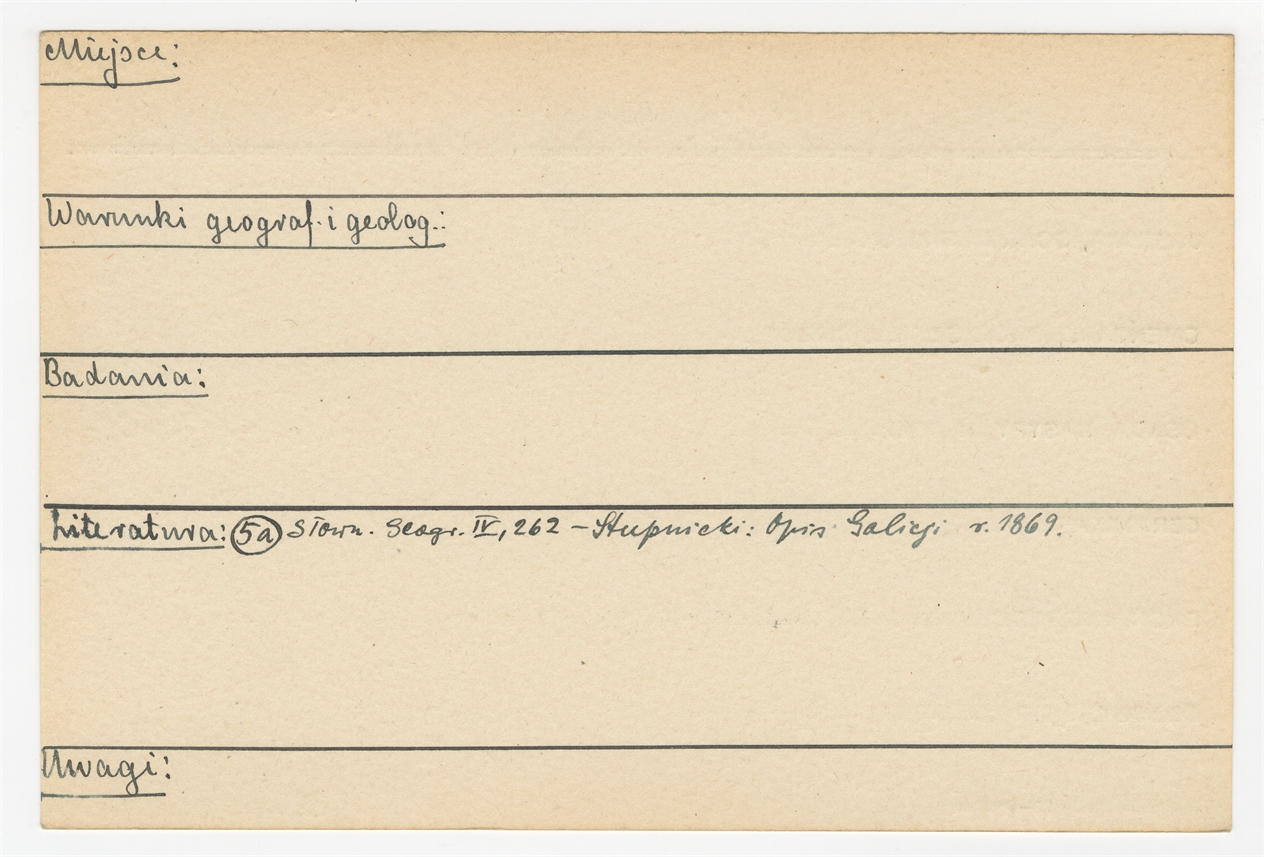 Miejsce:
Warunki geograf. i geolog.:
Badania:
Literatura: 5a Słown. Geogr. IV, 262 – Stupnicki: Opis Galicji r. 1869.
Uwagi: